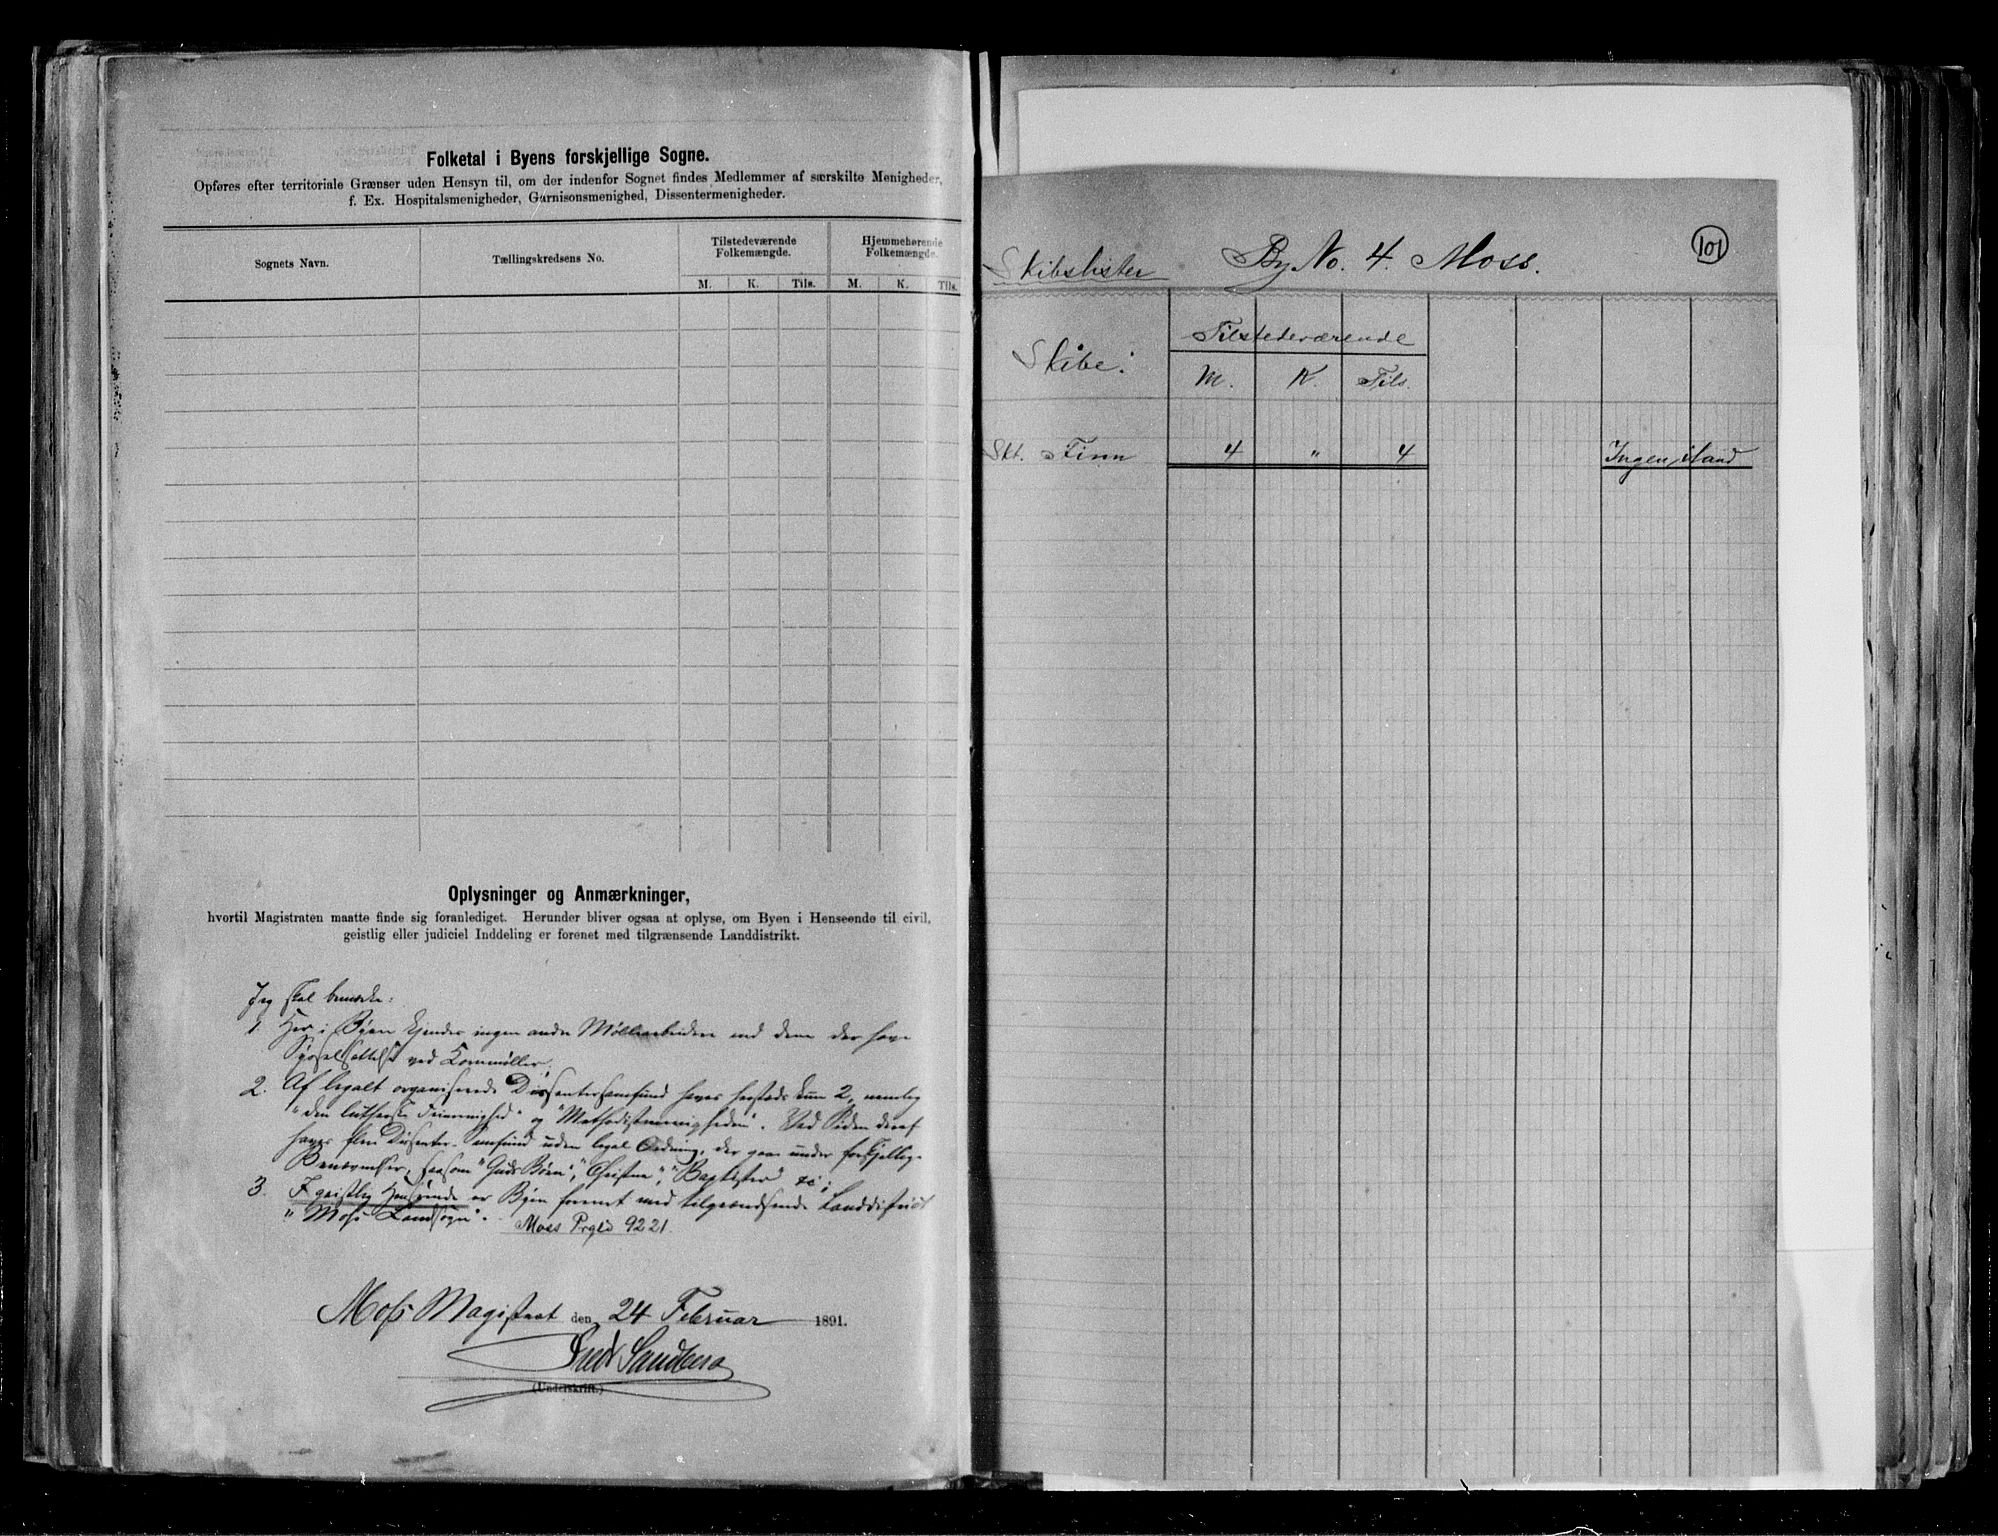 Folketal i Byens forskjellige Sogne.
Opføres efter territoriale Grænser uden Hensyn til, om der indenfor Sognet findes Medlemmer af særskilte Menigheder,
f. Ex. Hospitalsmenigheder, Garnisonsmenighed, Dissentermenigheder.
Sognets Navn. Tællingskredsens No. Tilstedeværende Folkemængde. Hjemmehørende Folkemængde.
M. K. Tils. M. K. Tils.
Oplysninger og Anmærkninger,
hvortil Magistraten maatte finde sig foranlediget. Herunder bliver ogsaa at oplyse, om Byen i Henseende til civil,
geistlig eller judiciel Inddeling er forenet med tilgrænsende Landdistrikt.
Jeg skal bemærke:
1. Her i Byen kjendes ingen andre Møllearbeidere end dem der have
Sysselsættelse ved Kornmøller.
2. Af legalt organiserede Dissentersamfund haves hersteds kun 2, nemlig
"den lutherske Frimenighed" og "Methodistmenigheden". Ved Siden deraf
haves flere Dissenter-Samfund uden legal Ordning, der gaar under forskjellige
Benævnelser, saasom "Guds Børn", "Christne", "Baptister" &c;
3. I geistlig Henseende er Byen forenet med tilgrændsende Landdistrict
"Moss Landsogn".
Moss Prgld 9221.
Moss Magistrat den 24 Februar 1891.
Fredr Sandberg
(Underskrift.)
101
Skibslister By No. 4. Moss.
Skibe: Tilstedeværende
M. K. Tils.
Skt. Finn 4 " 4 Ingen iland